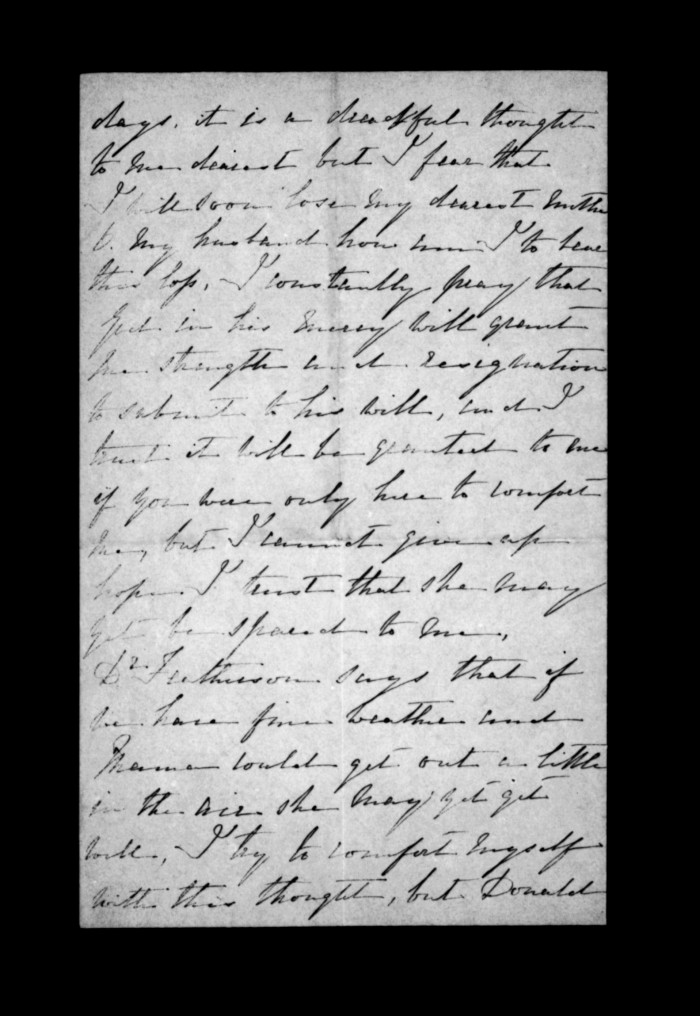 days, it is a dreadful thought
to me dearest but I fear that
I will soon lose my dearest Mother
O. my husband how am I to bear
this loss, I constantly pray that
God in his mercy will grant
me strength and resignation
to submit to his will, and I
trust it will be granted to me
if you were only here to comfort
me, but I cannot give up
hope I trust that she may
yet be spared to me,
Dr says that if
we have fine weather and
Mama could get out a little
in the air she may yet get
well, I try to comfort myself
with this thought, but Donald